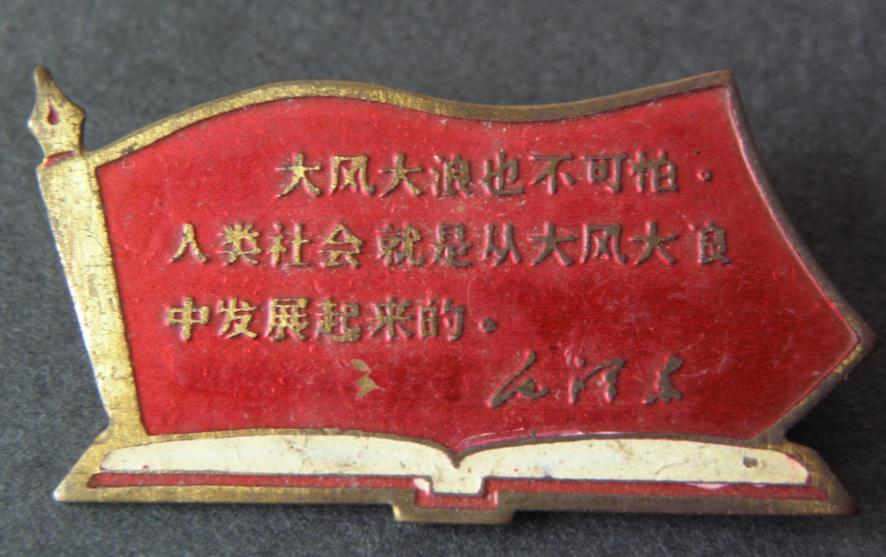 大风大浪也不可怕。
人类社会就是从大风大浪
中发展起来的。
毛泽东